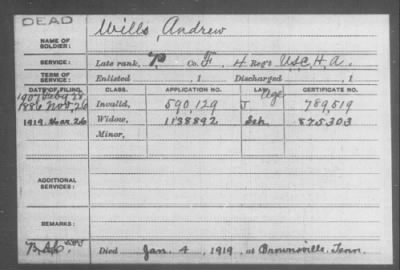 DEAD
NAME OF SOLDIER: Wills, Andrew
SERVICE: Late rank, P, Co. F, 4 Reg't U.S.C.H.A.
TERM OF SERVICE: Enlisted , 1 Discharged , 1
DATE OF FILING. CLASS. APPLICATION NO. LAW. CERTIFICATE NO.
1907 Feby 28 Age
1886 Nov. 26 Invalid, 590,129 J 789,519
1919 Mar. 26 Widow, 1138892 875303
Minor,
ADDITIONAL SERVICES:
REMARKS:
Died Jan. 4, 1919, at Brownsville, Tenn.